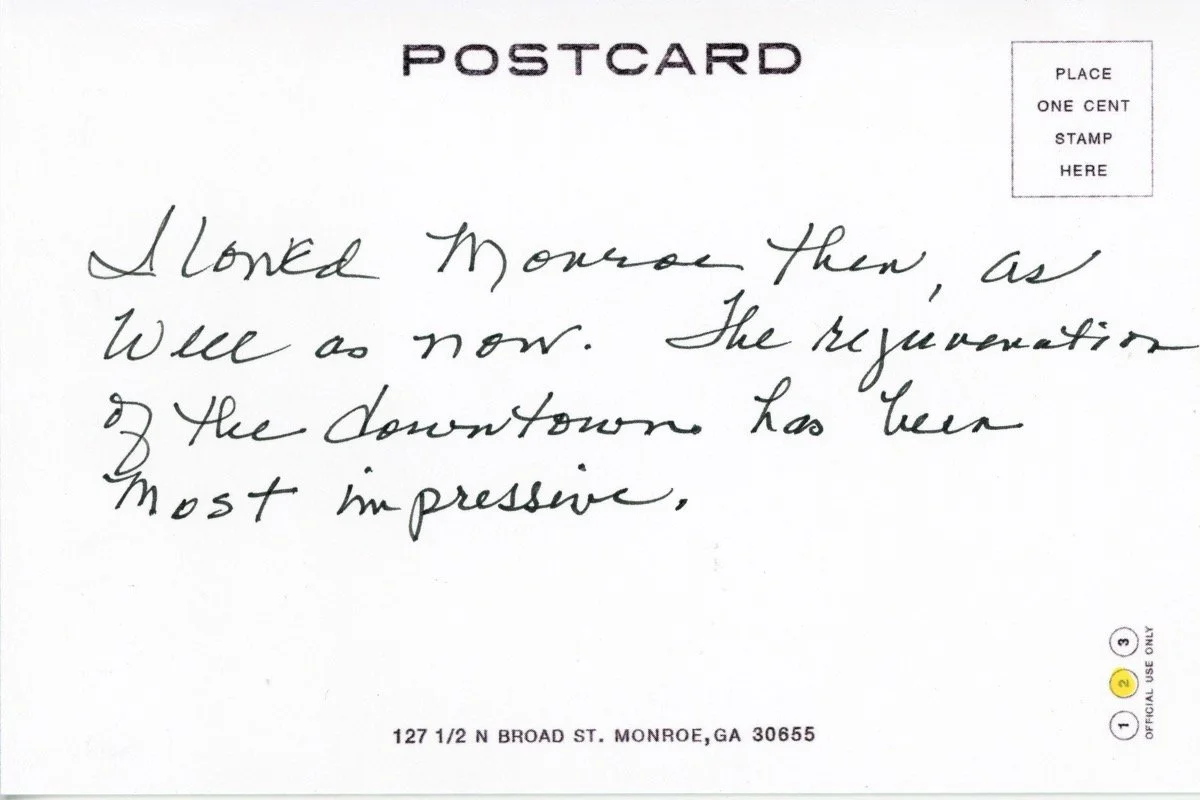 POSTCARD
PLACE
ONE CENT
STAMP
HERE
I loved Monroe then, as
Well as now. The rejuvenation
of the downtown has been
Most impressive.
1 2 3
OFFICIAL USE ONLY
127 1/2 N BROAD ST. MONROE,GA 30655